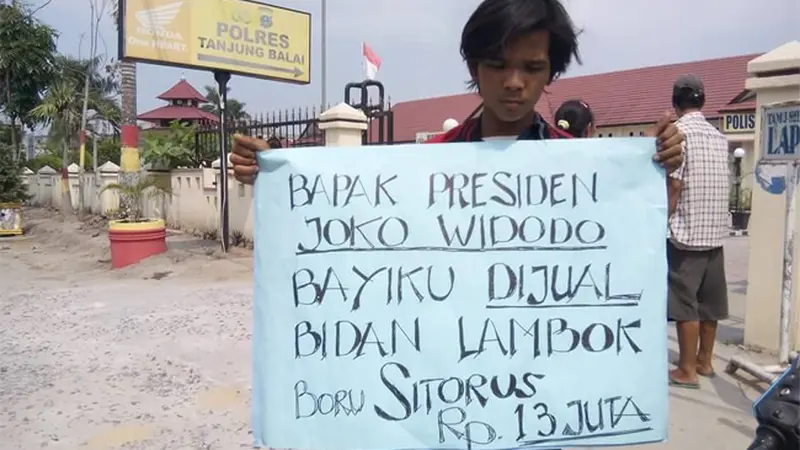 HONDA
One HEART.
POLRES
TANJUNG BALAI
BAPAK PRESIDEN
JOKO WIDODO
BAYIKU DIJUAL
BIDAN LAMBOK
BORU SITORUS
Rp. 13 JUTA
POLIS
LAP